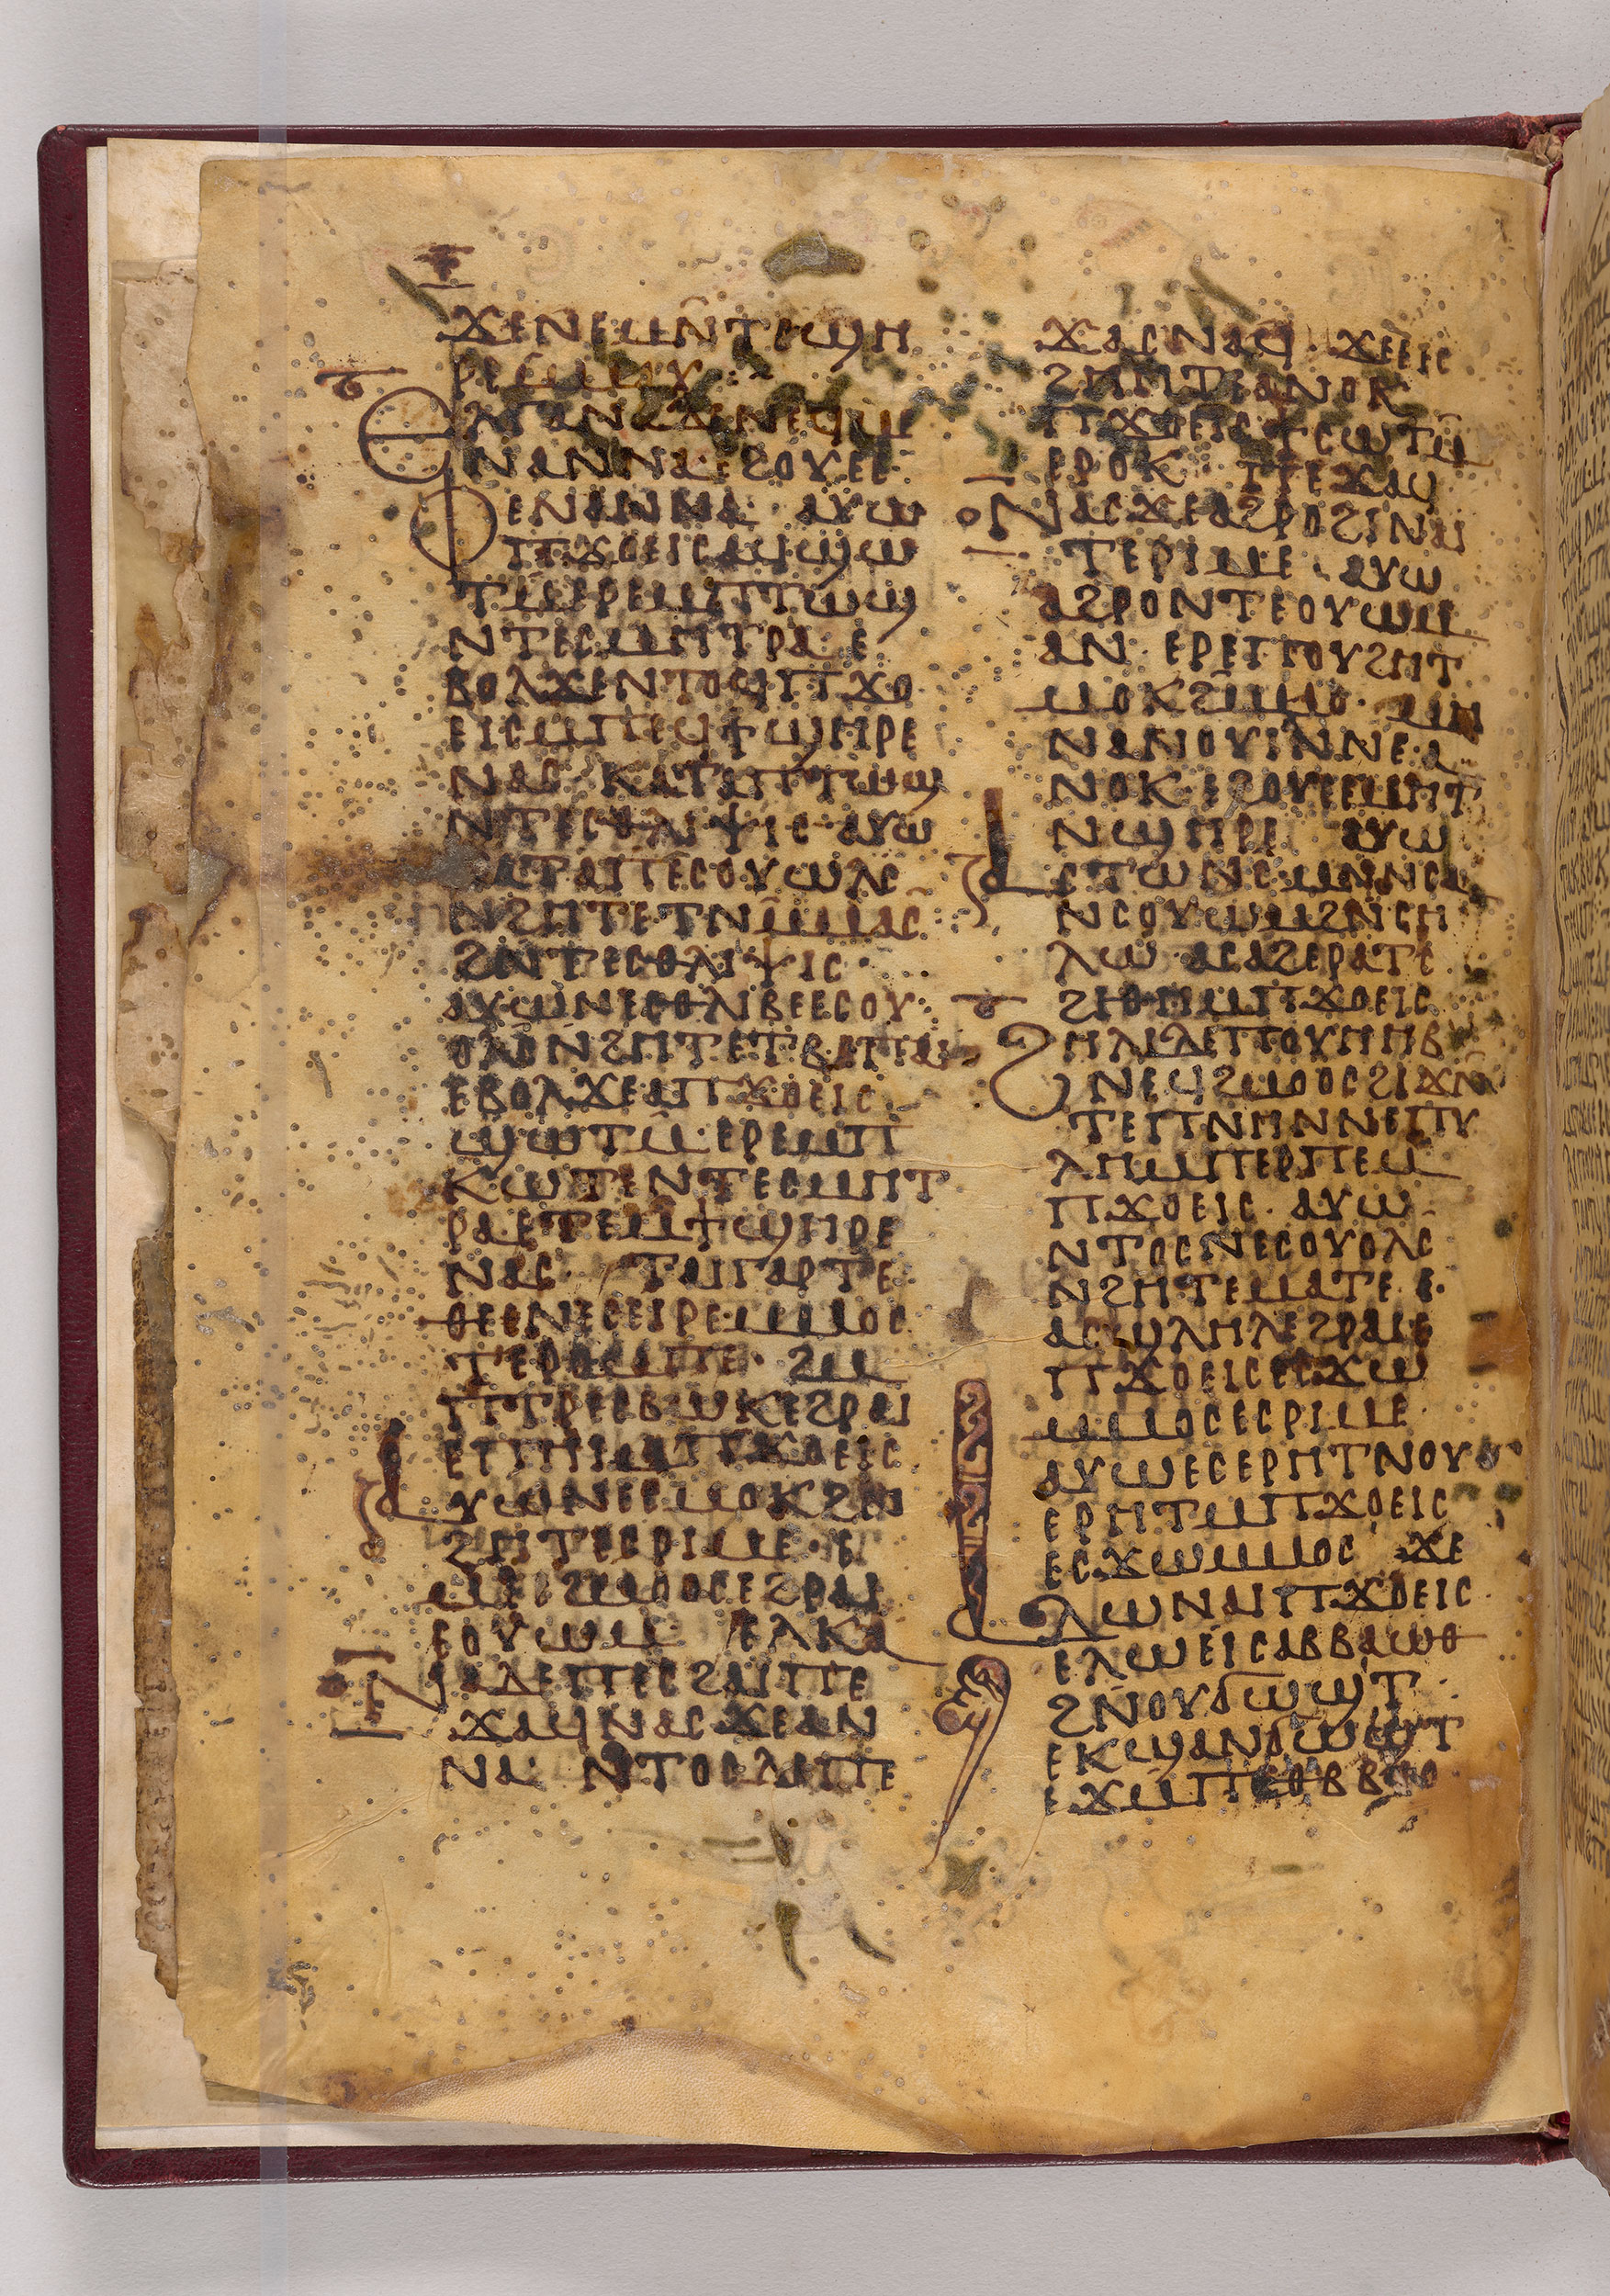 ϫⲉⲛⲉⲙⲛ̄ⲧⲥϣⲏ
ⲣⲉⲙⲙⲁⲩ
ⲉⲗⲕⲁⲛⲁ ⲇⲉ ⲛⲉϥⲙⲉ
ⲛⲁⲛⲛⲁ ⲉϩⲟⲩⲉⲉ
ⲫⲉⲛⲁⲛⲛⲁ· ⲁⲩⲱ
ⲡϫⲟⲉⲓⲥⲁϥϣⲱ
ⲧⲙⲉⲣⲉⲙⲡⲧⲱϣ
ⲛⲧⲉⲥⲙⲏⲧⲣⲁ· ⲉ
ⲃⲟⲗϫⲉⲛⲧⲟϥⲡϫⲟ
ⲉⲓⲥⲙⲡⲉϥϯϣⲏⲣⲉ
ⲛⲁⲥ· ⲕⲁⲧⲁⲡⲧⲱϣ
ⲛⲧⲉⲥⲑⲗⲓⲯⲓⲥ ⲁⲩⲱ
ⲕⲁⲧⲁⲡⲉⲥⲟⲩⲱⲗⲥ
ⲛϩⲏⲧⲉⲧⲛⲙ̄ⲙⲁⲥ
ϩⲛⲧⲉⲥⲑⲗⲓⲯⲓⲥ·
ⲁⲩⲱⲛⲉⲥⲑⲗⲓⲃⲉⲉⲥⲟⲩ
ⲟⲗⲥⲛϩⲏⲧⲉⲧⲃⲉⲡⲁⲓ
ⲉⲃⲟⲗϫⲉⲁⲡϫⲟⲉⲓⲥ
ϣⲱⲧⲙ̄ⲉⲣⲉⲙⲡ
ⲕⲱⲧⲉⲛⲧⲉⲥⲙⲏⲧ
ⲣⲁⲉⲧⲉⲙϯϣⲏⲣⲉ
ⲛⲁⲥ· ⲧⲁⲓⲅⲁⲣⲧⲉ
ⲑⲉⲉⲛⲉⲥⲉⲓⲣⲉⲙⲙⲟⲥ
ⲧⲉⲣⲟⲙⲡⲉ· ϩⲙ
ⲡⲧⲣⲉⲥⲃⲱⲕⲉϩⲣⲁⲓ
ⲉⲡⲏⲓⲙⲡϫⲟⲉⲓⲥ
ⲁⲩⲱⲛⲉⲥⲙⲟⲕϩⲛ
ϩⲏⲧⲉⲥⲣⲓⲙⲉ· ⲉ
ⲙⲉⲥϩⲙⲟⲟⲥⲉϩⲣⲁⲓ
ⲉⲟⲩⲱⲙ· ⲉⲗⲕⲁ
ⲛⲁⲇⲉⲡⲉⲥϩⲁⲓⲡⲉ
ϫⲁϥⲛⲁⲥϫⲉⲁⲛ
ⲛⲁ· ⲛⲧⲟⲥⲇⲉⲡⲉ
ϫⲁⲥⲛⲁϥ· ϫⲉⲉⲓⲥ
ϩⲏⲏⲧⲉⲁⲛⲟⲕ
ⲡϫⲟⲉⲓⲥϯⲥⲱⲧⲙ̄
ⲉⲣⲟⲕ· ⲡⲉϫⲁϥ
ⲛⲁⲥϫⲉⲁϩⲣⲟϩⲓⲛⲁⲓ
ⲧⲉⲣⲓⲙⲉ· ⲁⲩⲱ
ⲁϩⲣⲟⲛⲧⲉⲟⲩⲱⲙ
ⲁⲛ· ⲉⲣⲉⲡⲟⲩϩⲏⲧ
ⲙⲟⲕϩⲙⲙⲟ· ⲙⲏ
ⲛⲁⲛⲟⲩⲓⲛⲛⲉ·ⲁ
ⲛⲟⲕ ⲉϩⲟⲩⲉⲉⲙⲏⲧ
ⲛϣⲏⲣⲉ ⲁⲩⲱ
ⲁⲥⲧⲱⲛⲥⲙⲛⲛⲥⲁ
ⲛⲥⲟⲩⲱⲙϩⲛⲥⲏ
ⲗⲱ· ⲁⲥⲁϩⲉⲣⲁⲧⲥ
ϩⲓⲑⲏⲙⲡϫⲟⲉⲓⲥ
ϩⲏⲗⲓⲇⲉⲡⲟⲩⲏⲏⲃ
ⲛⲉϥϩⲙⲟⲟⲥϩⲓϫⲛ̄
ⲧⲉⲡⲛⲏⲛⲛⲉⲡⲩ
ⲗⲏⲙⲡⲉⲣⲡⲉⲙ
ⲡϫⲟⲉⲓⲥ· ⲁⲩⲱ
ⲛⲧⲟⲥⲛⲉⲥⲟⲩⲟⲗⲥ
ⲛϩⲏⲧⲉⲙⲁⲧⲉ·
ⲁⲥϣⲗⲏⲗⲉϩⲣⲁⲓⲉ
ⲡϫⲟⲉⲓⲥⲉⲥϫⲱ
ⲙⲙⲟⲥⲉⲥⲣⲓⲙⲉ·
ⲁⲩⲱⲉⲥⲉⲣⲏⲧⲛⲟⲩ
ⲉⲣⲏⲧⲙⲡϫⲟⲉⲓⲥ
ⲉⲥϫⲱⲙⲙⲟⲥ ϫⲉ
ⲁⲇⲱⲛⲁⲓⲡϫⲟⲉⲓⲥ
ⲉⲗⲱⲉⲓⲥⲁⲃⲃⲁⲱⲑ
ϩⲛⲟⲩϭⲱϣⲧ
ⲉⲕϣⲁⲛϭⲱϣⲧ
ⲉϫⲙⲡⲉⲑⲃⲃⲓⲟ